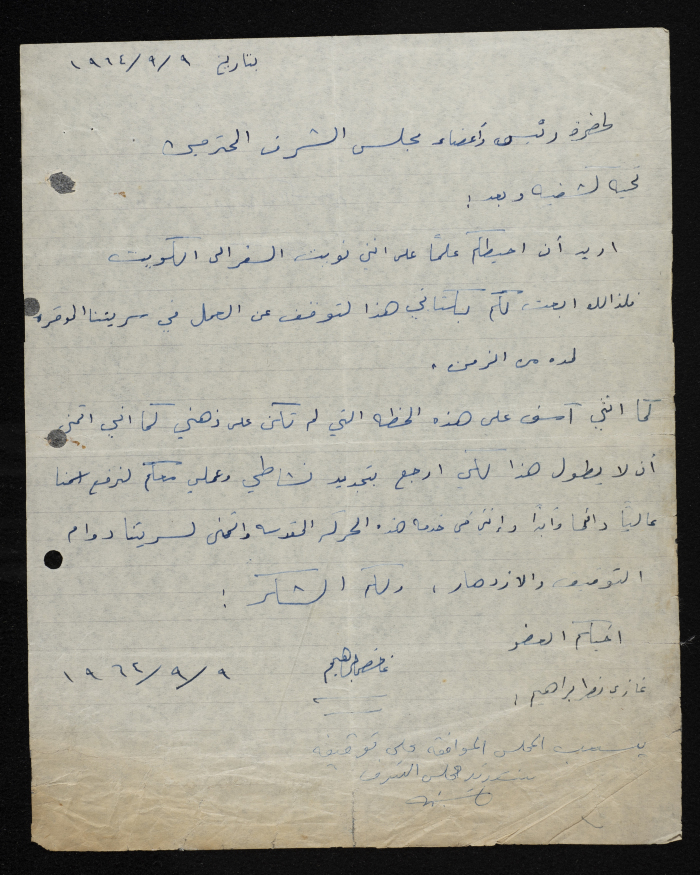 بتاريخ ٩/٩/١٩٦٤
لحضرة رئيس وأعضاء مجلس الشرف المحترمين
تحية كشفية وبعد !
اريد أن احيطكم علماً على انني نويت السفر الى الكويت
فلذالك ابعث لكم بكتابي هذا لتوقف عن العمل في سريتنا الموقره
لمده من الزمن .
كما انني آسف على هذه الخطه التي لم تكن على ذهني كما اني اتمنى
أن لا يطول هذا لكي ارجع بتجديد نشاطي وعملي معكم لنرفع اسمنا
عالياً دائماً وأبداً وإنني في خدمة هذه الحركه المقدسه واتمنى لسريتنا دوام
التقدم والازدهار ، ولكم الشكر !
اخيكم العضو
غازي ابراهيم
٩/٩/١٩٦٤
المجلس الموافقه على توقيفه
مجلس الشرف